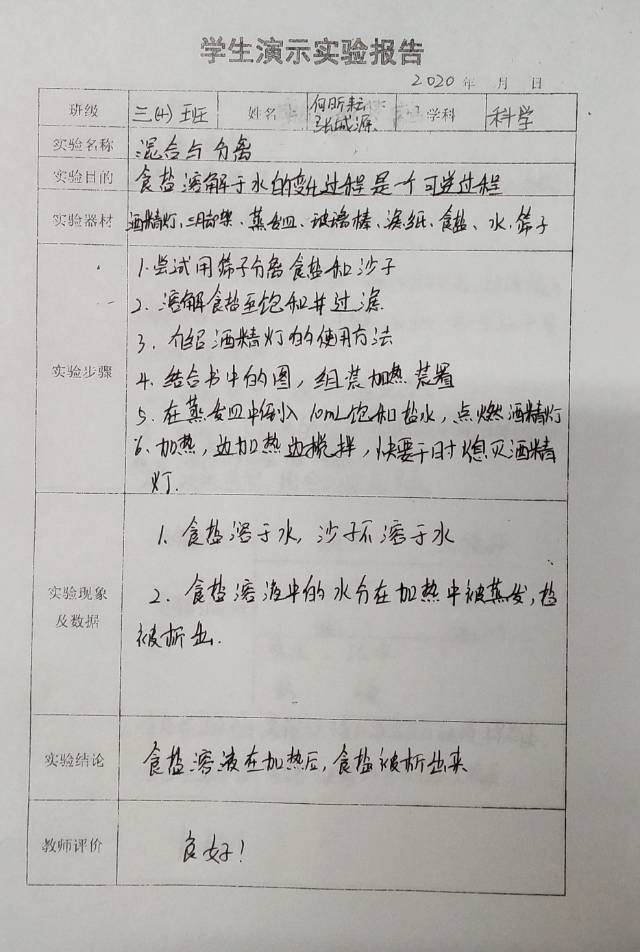 学生演示实验报告
2020 年 月 日
班级 三(4)班 姓名 何昕耘 张城源 学科 科学
实验名称 混合与分离
实验目的 食盐溶解于水的变化过程是一个可逆过程
实验器材 酒精灯、三脚架、蒸发皿、玻璃棒、滤纸、食盐、水、筛子
实验步骤
1.尝试用筛子分离食盐和沙子
2.溶解食盐至饱和并过滤
3.介绍酒精灯的使用方法
4.结合书中的图,组装加热装置
5.在蒸发皿中倒入10mL饱和盐水,点燃酒精灯
6.加热,边加热边搅拌,快要干时熄灭酒精
灯.
实验现象
及数据
1.食盐溶于水,沙子不溶于水
2.食盐溶液中的水分在加热中被蒸发,盐
被析出.
实验结论 食盐溶液在加热后,食盐被析出来
教师评价 良好!